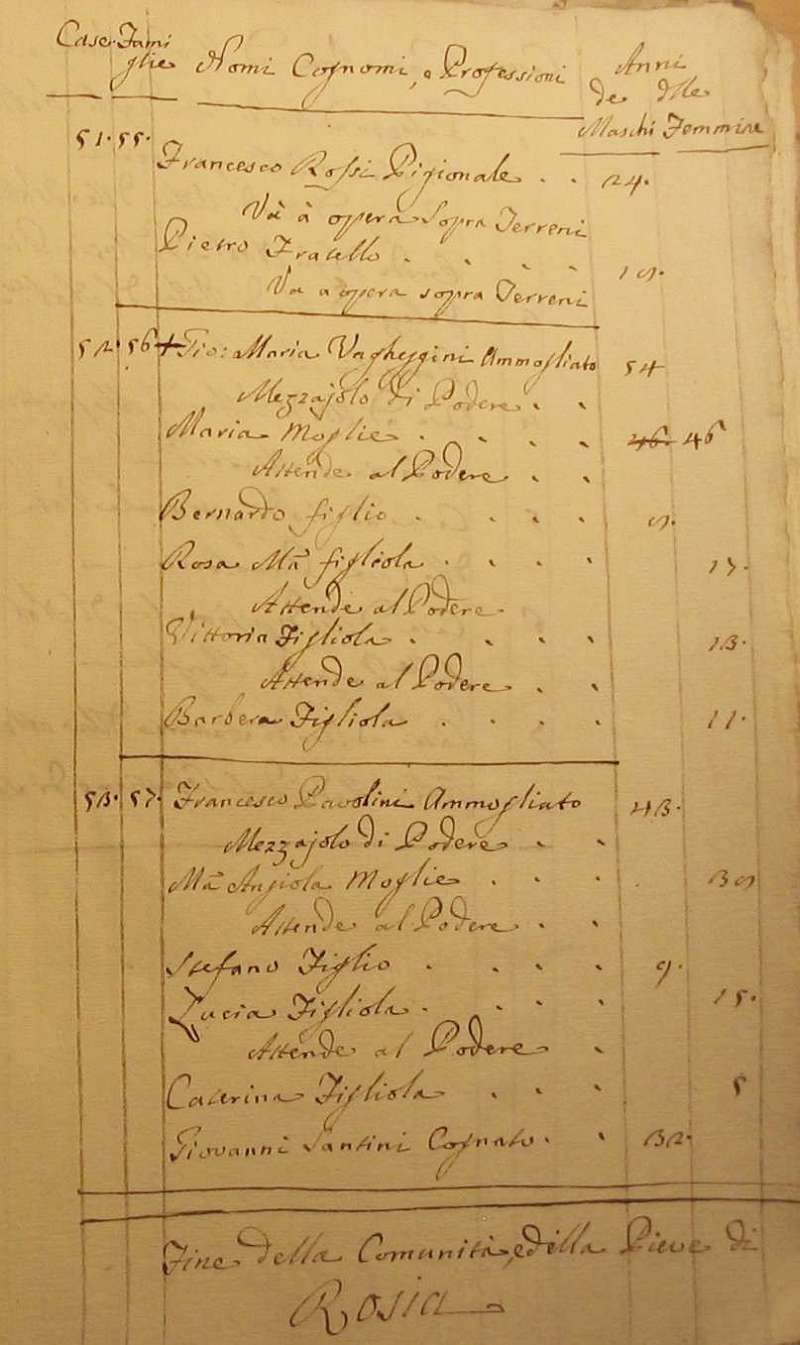 Case Fami
glie Nomi Cognomi, e Professioni Anni
de dlle
Maschi Femmine
51. 55. Francesco Rossi Pigionale . . 24.
Và à opera sopra Terreni
Pietro Fratello . . . . 19.
Va a opera sopra Terreni
52. 56 + Gio: Maria Vagheggini Ammogliato 54
Mezzajolo di Podere . .
Maria Moglie . . . . 46. 46
Attende al Podere . .
Bernardo figlio . . . . 9.
Rosa Mª figliola . . . . 17.
Attende al Podere.
Vittoria Figliola . . . . 13.
Attende al Podere . .
Barbera Figliola . . . . 11.
53. 57. Francesco Pavolini Ammogliato 43.
Mezzajolo di Podere . .
Mª Angiola Moglie . . . 39
Attende al Podere . .
Stefano Figlio . . . . 9.
Lucia Figliola . . . . 15.
Attende al Podere .
Caterina Figliola . . . 5
Giovanni Santini Cognato . . 32.
Fine della Comunità, e della Pieve di
Rosia